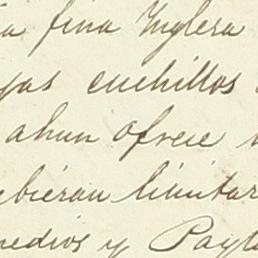 a fina Inglesa
gas cuchillos
ahun ofrece
ebieran limitar
medios y Payta